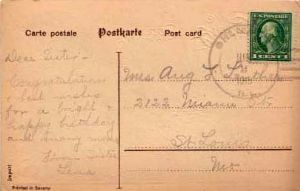 Carte postale Postkarte Post card
U.S. POSTAGE
1 CENT 1
Dear Sister -
Congratulations
& best wishes
for a bright &
happy birthday
and many more
Your Sister
Lena
Mrs. Aug L.
2122 Miami St.
St. Louis
Mo.
Import
Printed in Saxony